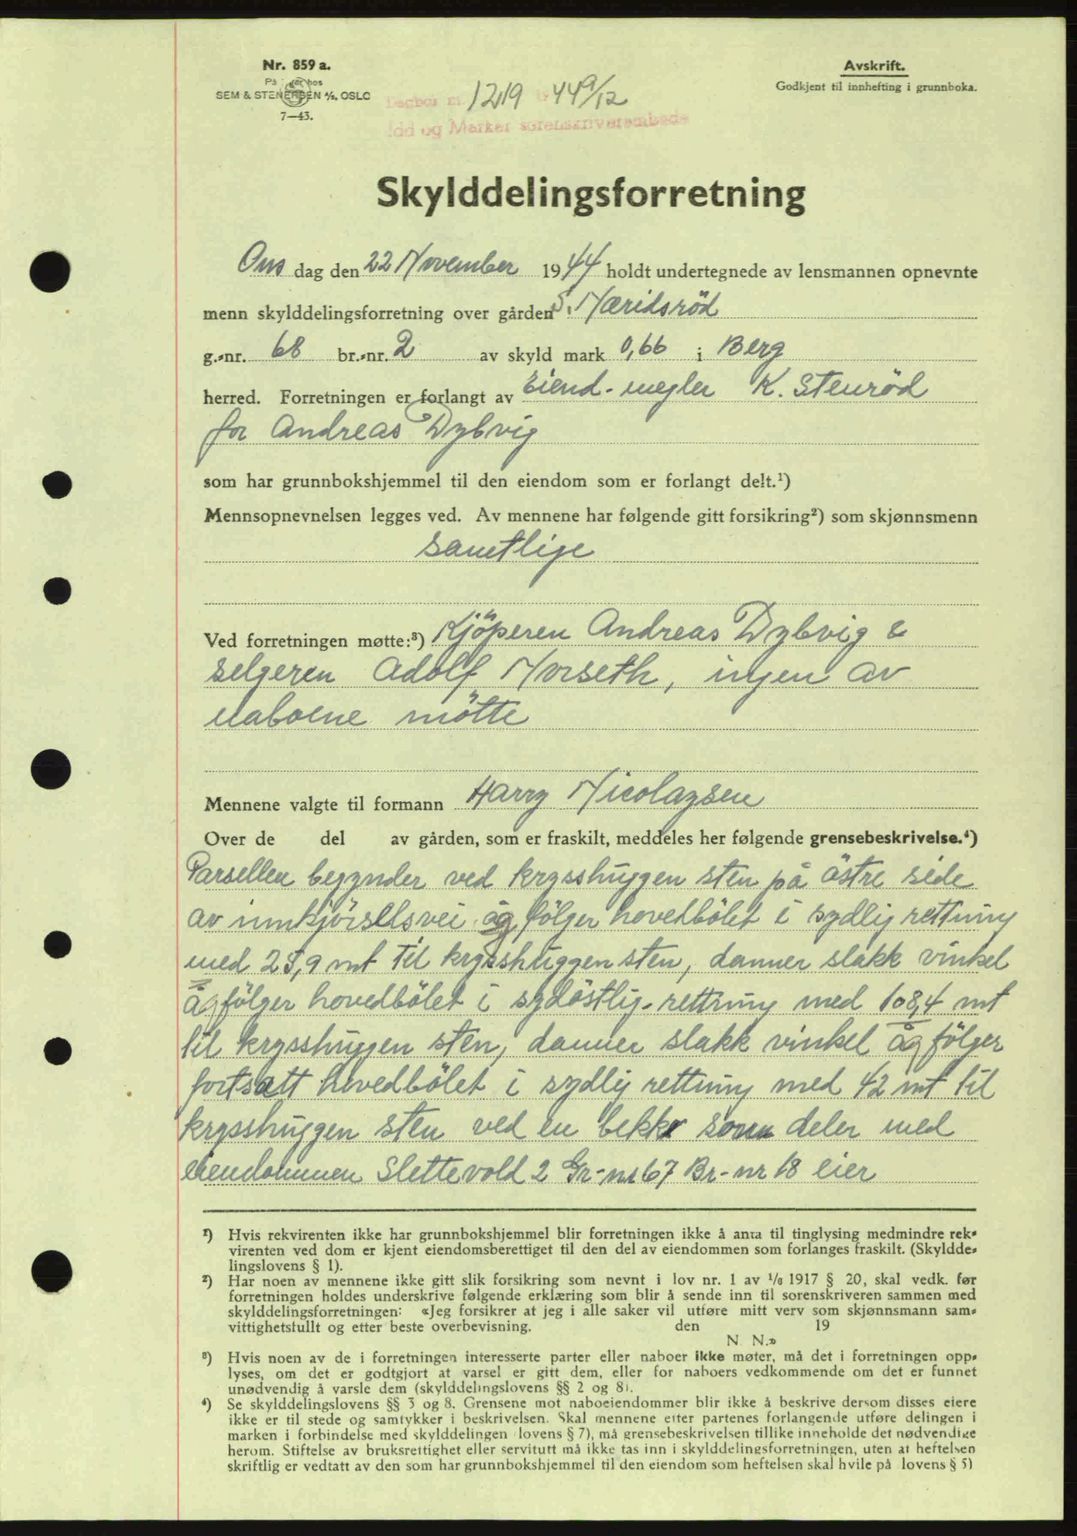 Nr. 859 a.
På lager hos
SEM & STENERSEN A/S, OSLO
7—43.
Avskrift.
Godkjent til innhefting i grunnboka.
Dagbok nr. 1219 1944 9/12
Idd og Marker sorenskriverembede
Skylddelingsforretning
Ons dag den 22 November 1944 holdt undertegnede av lensmannen opnevnte
menn skylddelingsforretning over gården S. Næridsröd
g.-nr. 68 br.-nr. 2 av skyld mark 0,66 i Berg
herred. Forretningen er forlangt av Eiend-megler K. Stenröd
for Andreas Dybvig
som har grunnbokshjemmel til den eiendom som er forlangt delt.¹)
Mennsopnevnelsen legges ved. Av mennene har følgende gitt forsikring²) som skjønnsmenn
samtlige
Ved forretningen møtte:³) Kjöperen Andreas Dybvig &
selgeren Adolf Norseth, ingen av
naboene mötte
Mennene valgte til formann Harry Nicolaysen
Over de del av gården, som er fraskilt, meddeles her følgende grensebeskrivelse.⁴)
Parsellen begynder ved krysshuggen sten på östre side
av innkjörselsvei åg fölger hovedbölet i sydlig rettning
med 25,9 mt til krysshuggen sten, danner slakk vinkel
åg fölger hovedbölet i sydöstlig-rettning med 108,4 mt
til krysshuggen sten, danner slakk vinkel åg fölger
fortsatt hovedbölet i sydlig rettning med 42 mt til
krysshuggen sten ved en bekk som deler med
eiendommen Slettevold 2 Gr-nr 67 Br-nr 18 eier
¹) Hvis rekvirenten ikke har grunnbokshjemmel blir forretningen ikke å anta til tinglysing medmindre rek-
virenten ved dom er kjent eiendomsberettiget til den del av eiendommen som forlanges fraskilt. (Skyldde-
lingslovens § 1).
²) Har noen av mennene ikke gitt slik forsikring som nevnt i lov nr. 1 av 1/6 1917 § 20, skal vedk. før
forretningen holdes underskrive følgende erklæring som blir å sende inn til sorenskriveren sammen med
skylddelingsforretningen: «Jeg forsikrer at jeg i alle saker vil utføre mitt verv som skjønnsmann sam-
vittighetsfullt og etter beste overbevisning. den 19
N N.»
³) Hvis noen av de i forretningen interesserte parter eller naboer ikke møter, må det i forretningen opp-
lyses, om det er godtgjort at varsel er gitt dem, eller for naboers vedkommende om det er funnet
unødvendig å varsle dem (skylddelingslovens §§ 2 og 8).
⁴) Se skylddelingslovens §§ 3 og 8. Grensene mot naboeiendommer blir ikke å beskrive dersom disses eiere
ikke er til stede og samtykker i beskrivelsen. Skal mennene etter partenes forlangende utføre delingen i
marken i forbindelse med skylddelingen (lovens § 7), må grensebeskrivelsen tillike inneholde det nødvendige
herom. Stiftelse av bruksrettighet eller servitutt må ikke tas inn i skylddelingsforretningen, uten at heftelsen
skriftlig er vedtatt av den som har grunnbokshjemmel til den eiendom som heftelsen skal hvile på (lovens § 5)